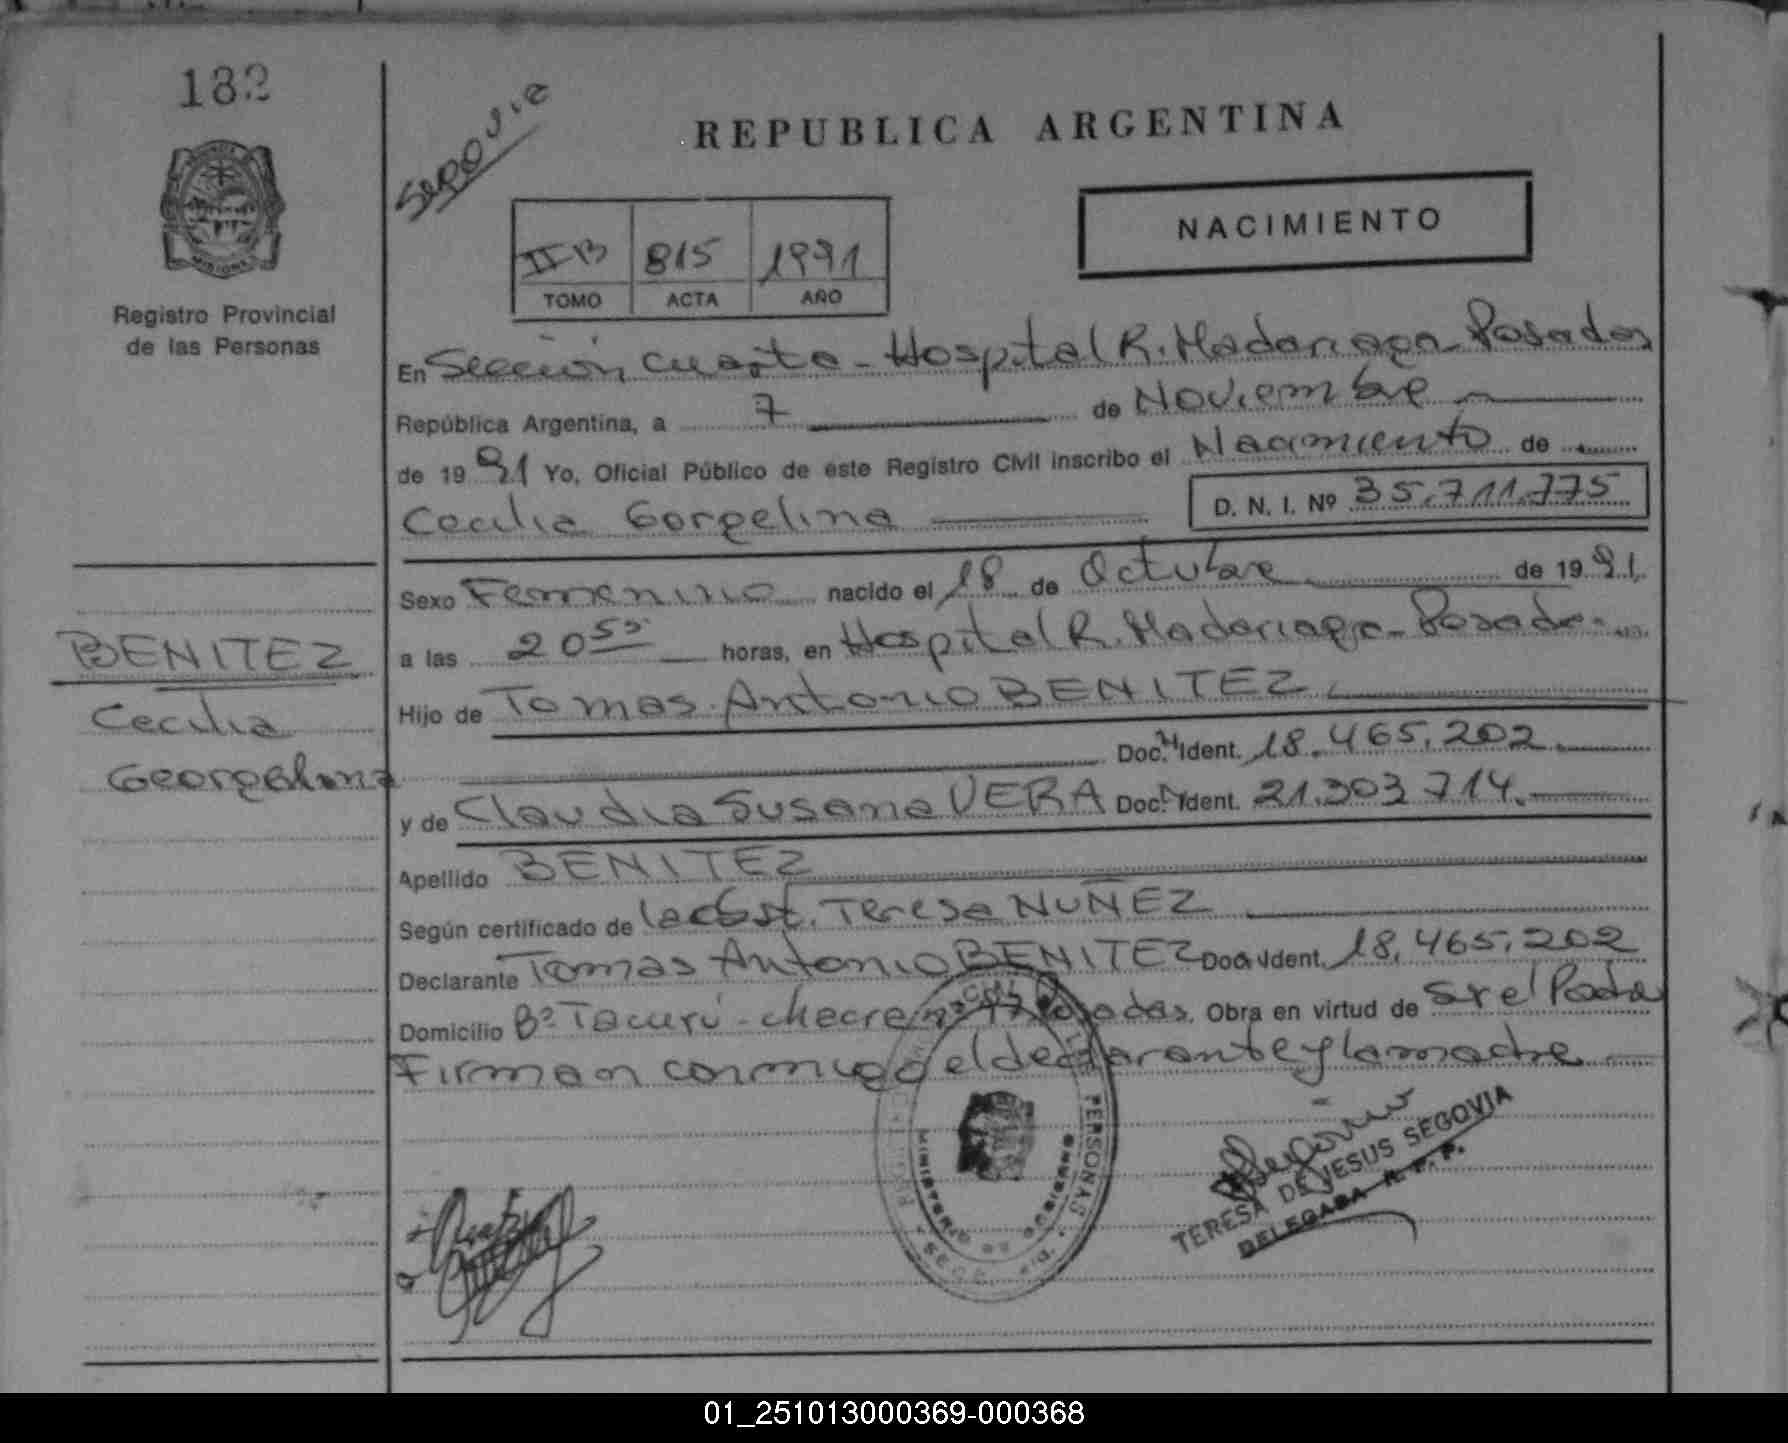 182
Segovia
REPUBLICA ARGENTINA
NACIMIENTO
II B 815 1991
TOMO ACTA AÑO
Registro Provincial
de las Personas
En Sección cuarta - Hospital R. Madariaga - Posadas
República Argentina, a 7 de Noviembre
de 1991 Yo, Oficial Público de este Registro Civil inscribo el Nacimiento de
Cecilia Gorgelina D. N. I. Nº 35.711.775
Sexo Femenino nacido el 18 de Octubre de 1991.
a las 20 55 horas, en Hospital R. Madariaga - Posadas
Hijo de Tomas Antonio BENITEZ
Doc. Ident. 18.465.202
y de Claudia Susana VERA Doc. Ident. 21.303.714.
Apellido BENITEZ
Según certificado de la Obst. Teresa NUÑEZ
Declarante Tomas Antonio BENITEZ Doc. Ident. 18.465.202
Domicilio Bº Tacurú - Posadas. Obra en virtud de Sr el Padre
Firman conmigo el declarante y la madre
BENITEZ
Cecilia
Georgelina
PERSONAS
MINISTERIO DE GOBIERNO
TERESA DE JESUS SEGOVIA
DELEGADA R. P. P.
01_251013000369-000368